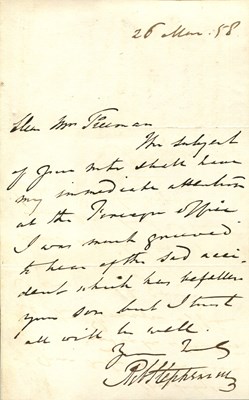 26 Mar. 58
Dear Mrs
The subject
of your note shall have
my immediate attention
at the Foreign Office
I was much grieved
to hear of the sad acci-
dent which has befallen
your son but I trust
all will be well.
Yours Truly
Rob Stephenson